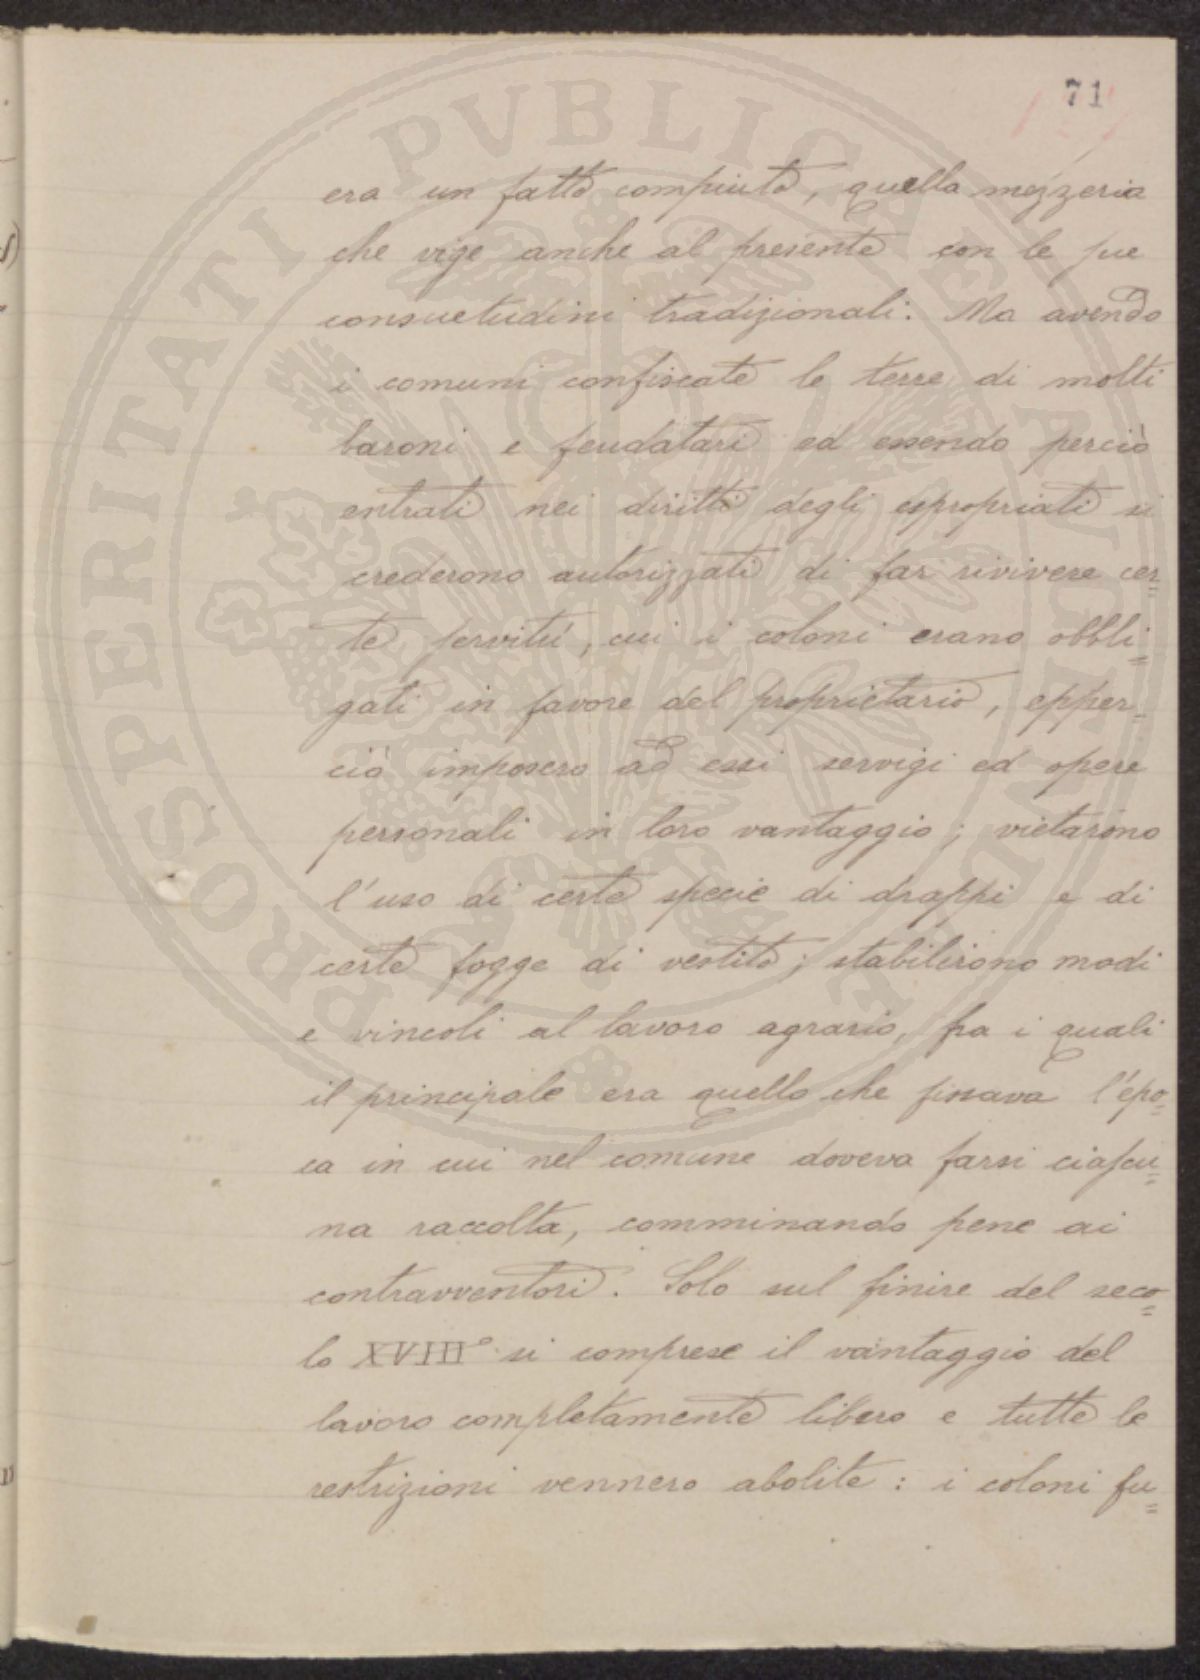 71
era un fatto compiuto, quella mezzeria
che vige anche al presente con le sue
consuetudini tradizionali. Ma avendo
i comuni confiscate le terre di molti
baroni e feudatari ed essendo perciò
entrati nei diritti degli espropriati si
crederono autorizzati di far rivivere cer=
te servitù, cui i coloni erano obbli=
gati in favore del proprietario, epper=
ciò imposero ad essi servigi ed opere
personali in loro vantaggio; vietarono
l'uso di certe specie di drappi e di
certe fogge di vestito; stabilirono modi
e vincoli al lavoro agrario, fra i quali
il principale era quello che fissava l'epo=
ca in cui nel comune doveva farsi ciascu=
na raccolta, comminando pene ai
contravventori. Solo sul finire del seco=
lo XVIII° si comprese il vantaggio del
lavoro completamente libero e tutte le
restrizioni vennero abolite: i coloni fu=
PROSPERITATI PVBLICAE AVGENDAE